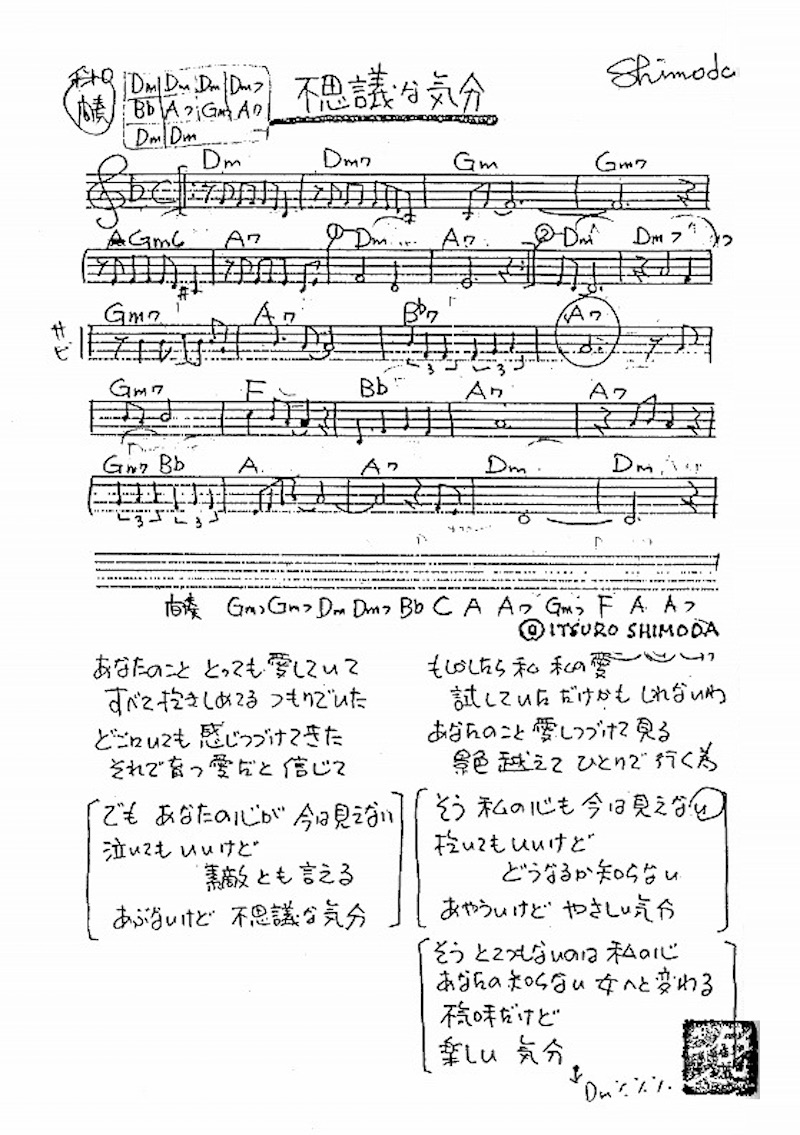 Shimoda
不思議な気分
イントロ
Dm Dm Dm Dm7
間奏
Bb A7 Gm A7
Dm Dm
Dm Dm7 Gm Gm7
Gm6 A7 ① Dm A7 ② Dm Dm7
サビ
Gm7 A7 Bb7 A7
3 3
Gm7 F Bb A7 A7
Gm7 Bb A A7 Dm Dm
3 3
間奏 Gm7 Gm7 Dm Dm7 Bb C A A7 Gm7 F A A7
© ITSURO SHIMODA
あなたのこと とっても愛していて
すべて抱きしめてる つもりでいた
どこにいても 感じつづけてきた
それで育つ愛だと 信じて
でも あなたの心が 今は見えない
泣いてもいいけど
素敵とも言える
あぶないけど 不思議な気分
もしかしたら 私 私の愛
試していただけかも しれないわ
あなたのこと 愛しつづけて見る
景色 越えて ひとりで 行く為
そう 私の心も 今は見えない
抱いてもいいけど
どうなるか知らない
あやういけど やさしい気分
そう とてつもないのは 私の心
あなたの知らない 女へと変わる
不気味だけど
楽しい 気分
Dm